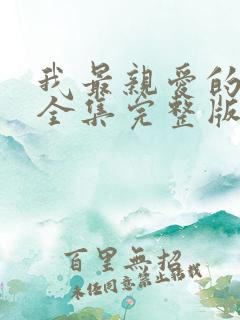 我最親愛的
全集完整版
百里無招
未经同意禁止转载